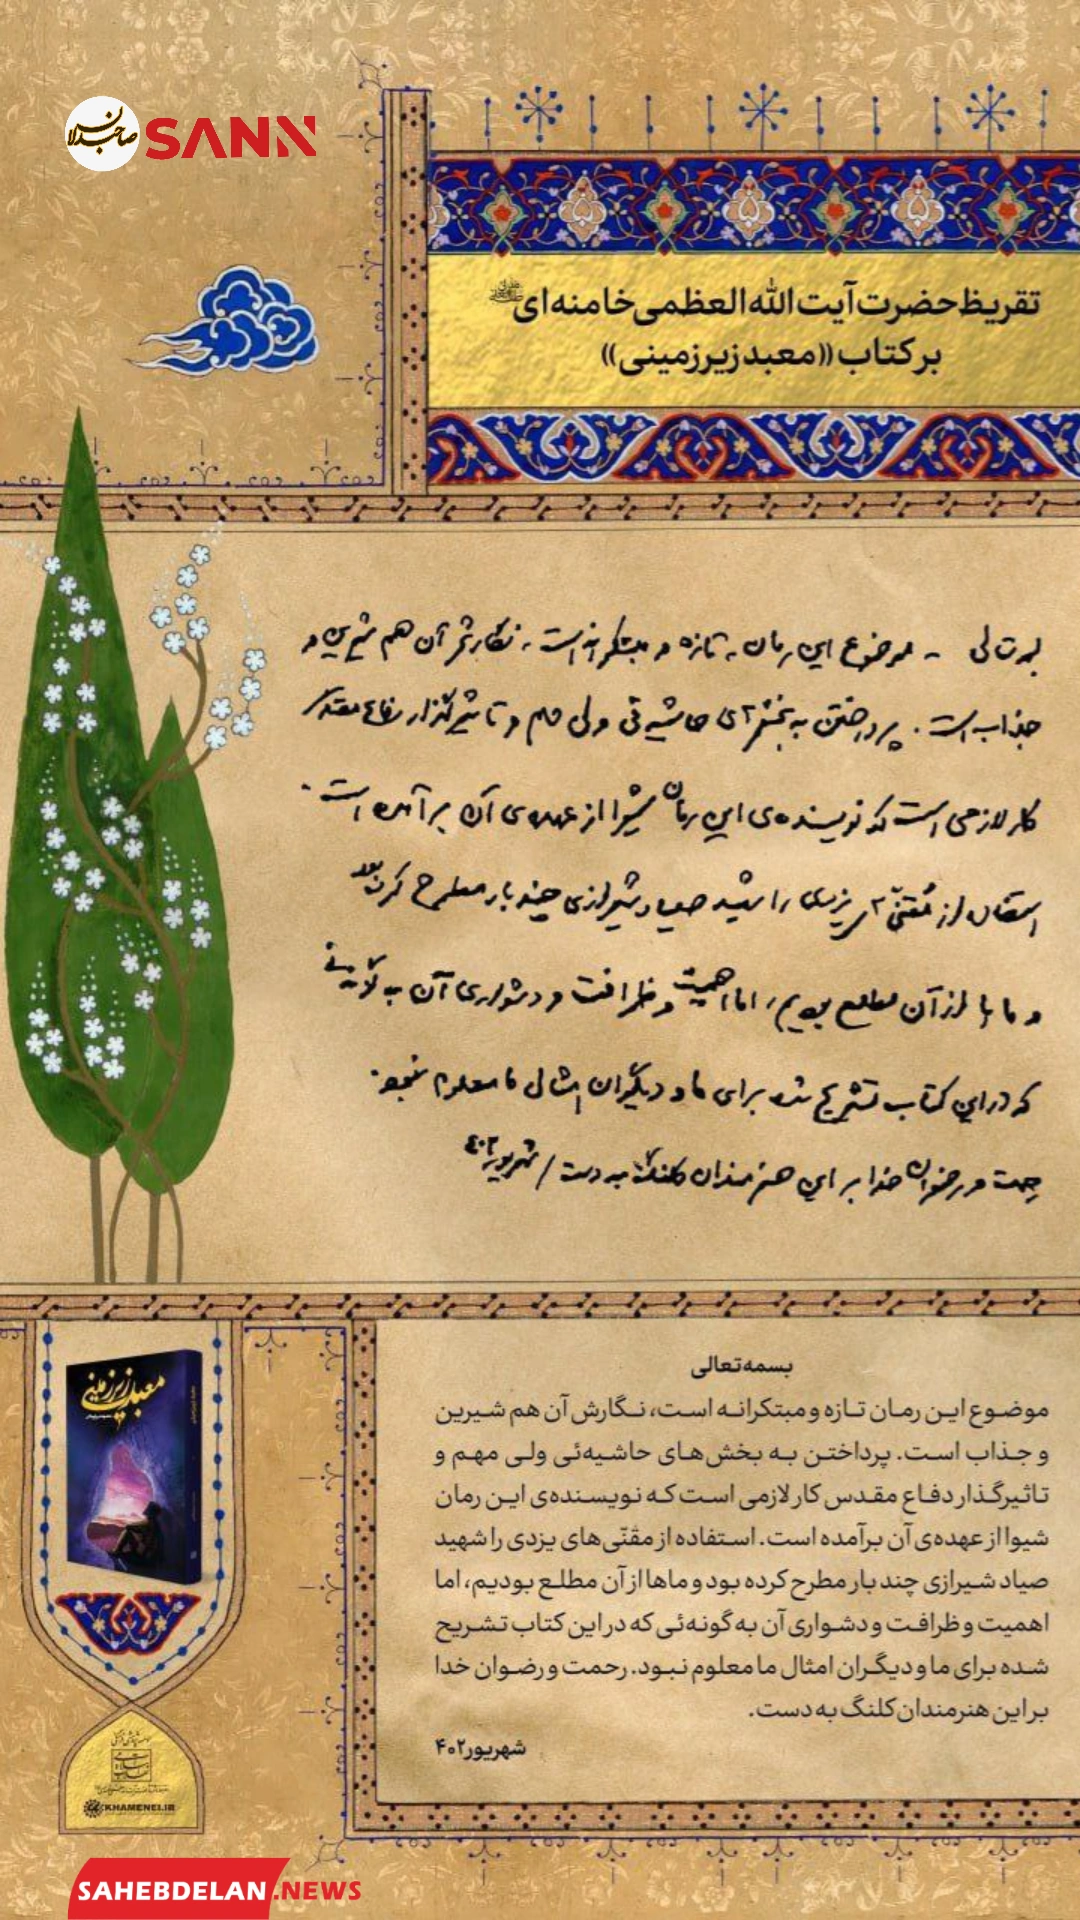 صاحبدلان
SANN
تقریظ حضرت آیت‌الله‌العظمی خامنه‌ای
بر کتاب «معبد زیرزمینی»
بسمه تعالی - موضوع این رمان، تازه و مبتکرانه است، نگارش آن هم شیرین و
جذاب است. پرداختن به بخش‌های حاشیه‌ئی ولی مهم و تاثیرگذار دفاع مقدس
کار لازمی است که نویسنده‌ی این رمان شیوا از عهده‌ی آن برآمده است.
استفاده از مُقنّی‌های یزدی را شهید صیاد شیرازی چند بار مطرح کرده بود
و ماها از آن مطلع بودیم، اما اهمیت و ظرافت و دشواری آن به گونه‌ئی
که در این کتاب تشریح شده برای ما و دیگران امثال ما معلوم نبود.
رحمت و رضوان خدا بر این هنرمندان کلنگ به دست / شهریور ۴۰۲
بسمه‌تعالی
موضوع این رمان تازه و مبتکرانه است، نگارش آن هم شیرین
و جذاب است. پرداختن به بخش‌های حاشیه‌ئی ولی مهم و
تاثیرگذار دفاع مقدس کار لازمی است که نویسنده‌ی این رمان
شیوا از عهده‌ی آن برآمده است. استفاده از مقنّی‌های یزدی را شهید
صیاد شیرازی چند بار مطرح کرده بود و ماها از آن مطلع بودیم، اما
اهمیت و ظرافت و دشواری آن به گونه‌ئی که در این کتاب تشریح
شده برای ما و دیگران امثال ما معلوم نبود. رحمت و رضوان خدا
بر این هنرمندان کلنگ به دست.
شهریور ۴۰۲
معبد زیرزمینی
KHAMENEI.IR
SAHEBDELAN.NEWS